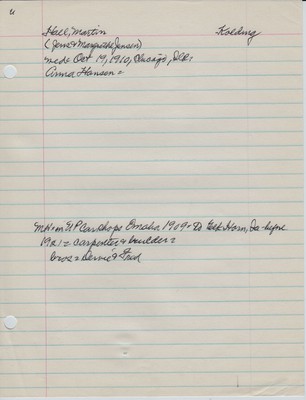 u
Hall, Martin Kolding
(Jens & Margrethe Jensen)
med= Oct 19, 1910, Chicago, Ills=
Anna Hansen=
MH= in UP Carshops Omaha 1909= To Elk Horn, Ia= before
1921= carpenter & builder=
bros= & Fred